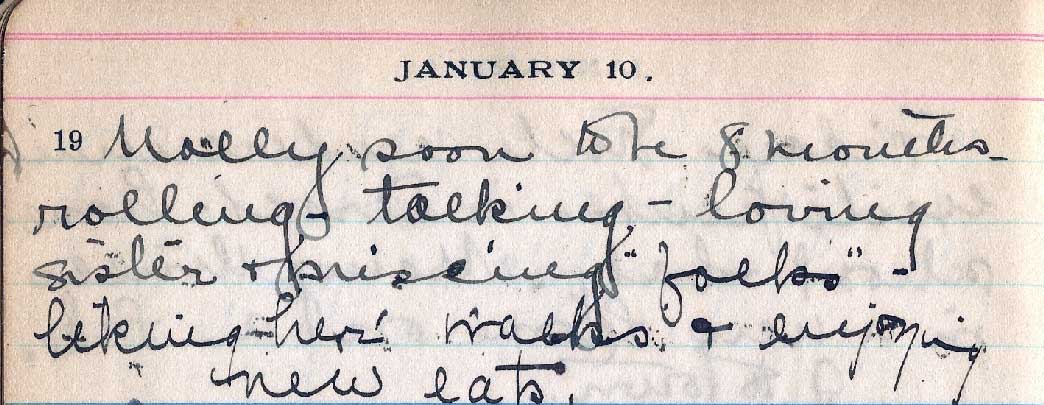 JANUARY 10.
19 Molly soon to be 8 months -
rolling - talking - loving
sister + missing "folks" -
liking her walks + enjoying
new eats.